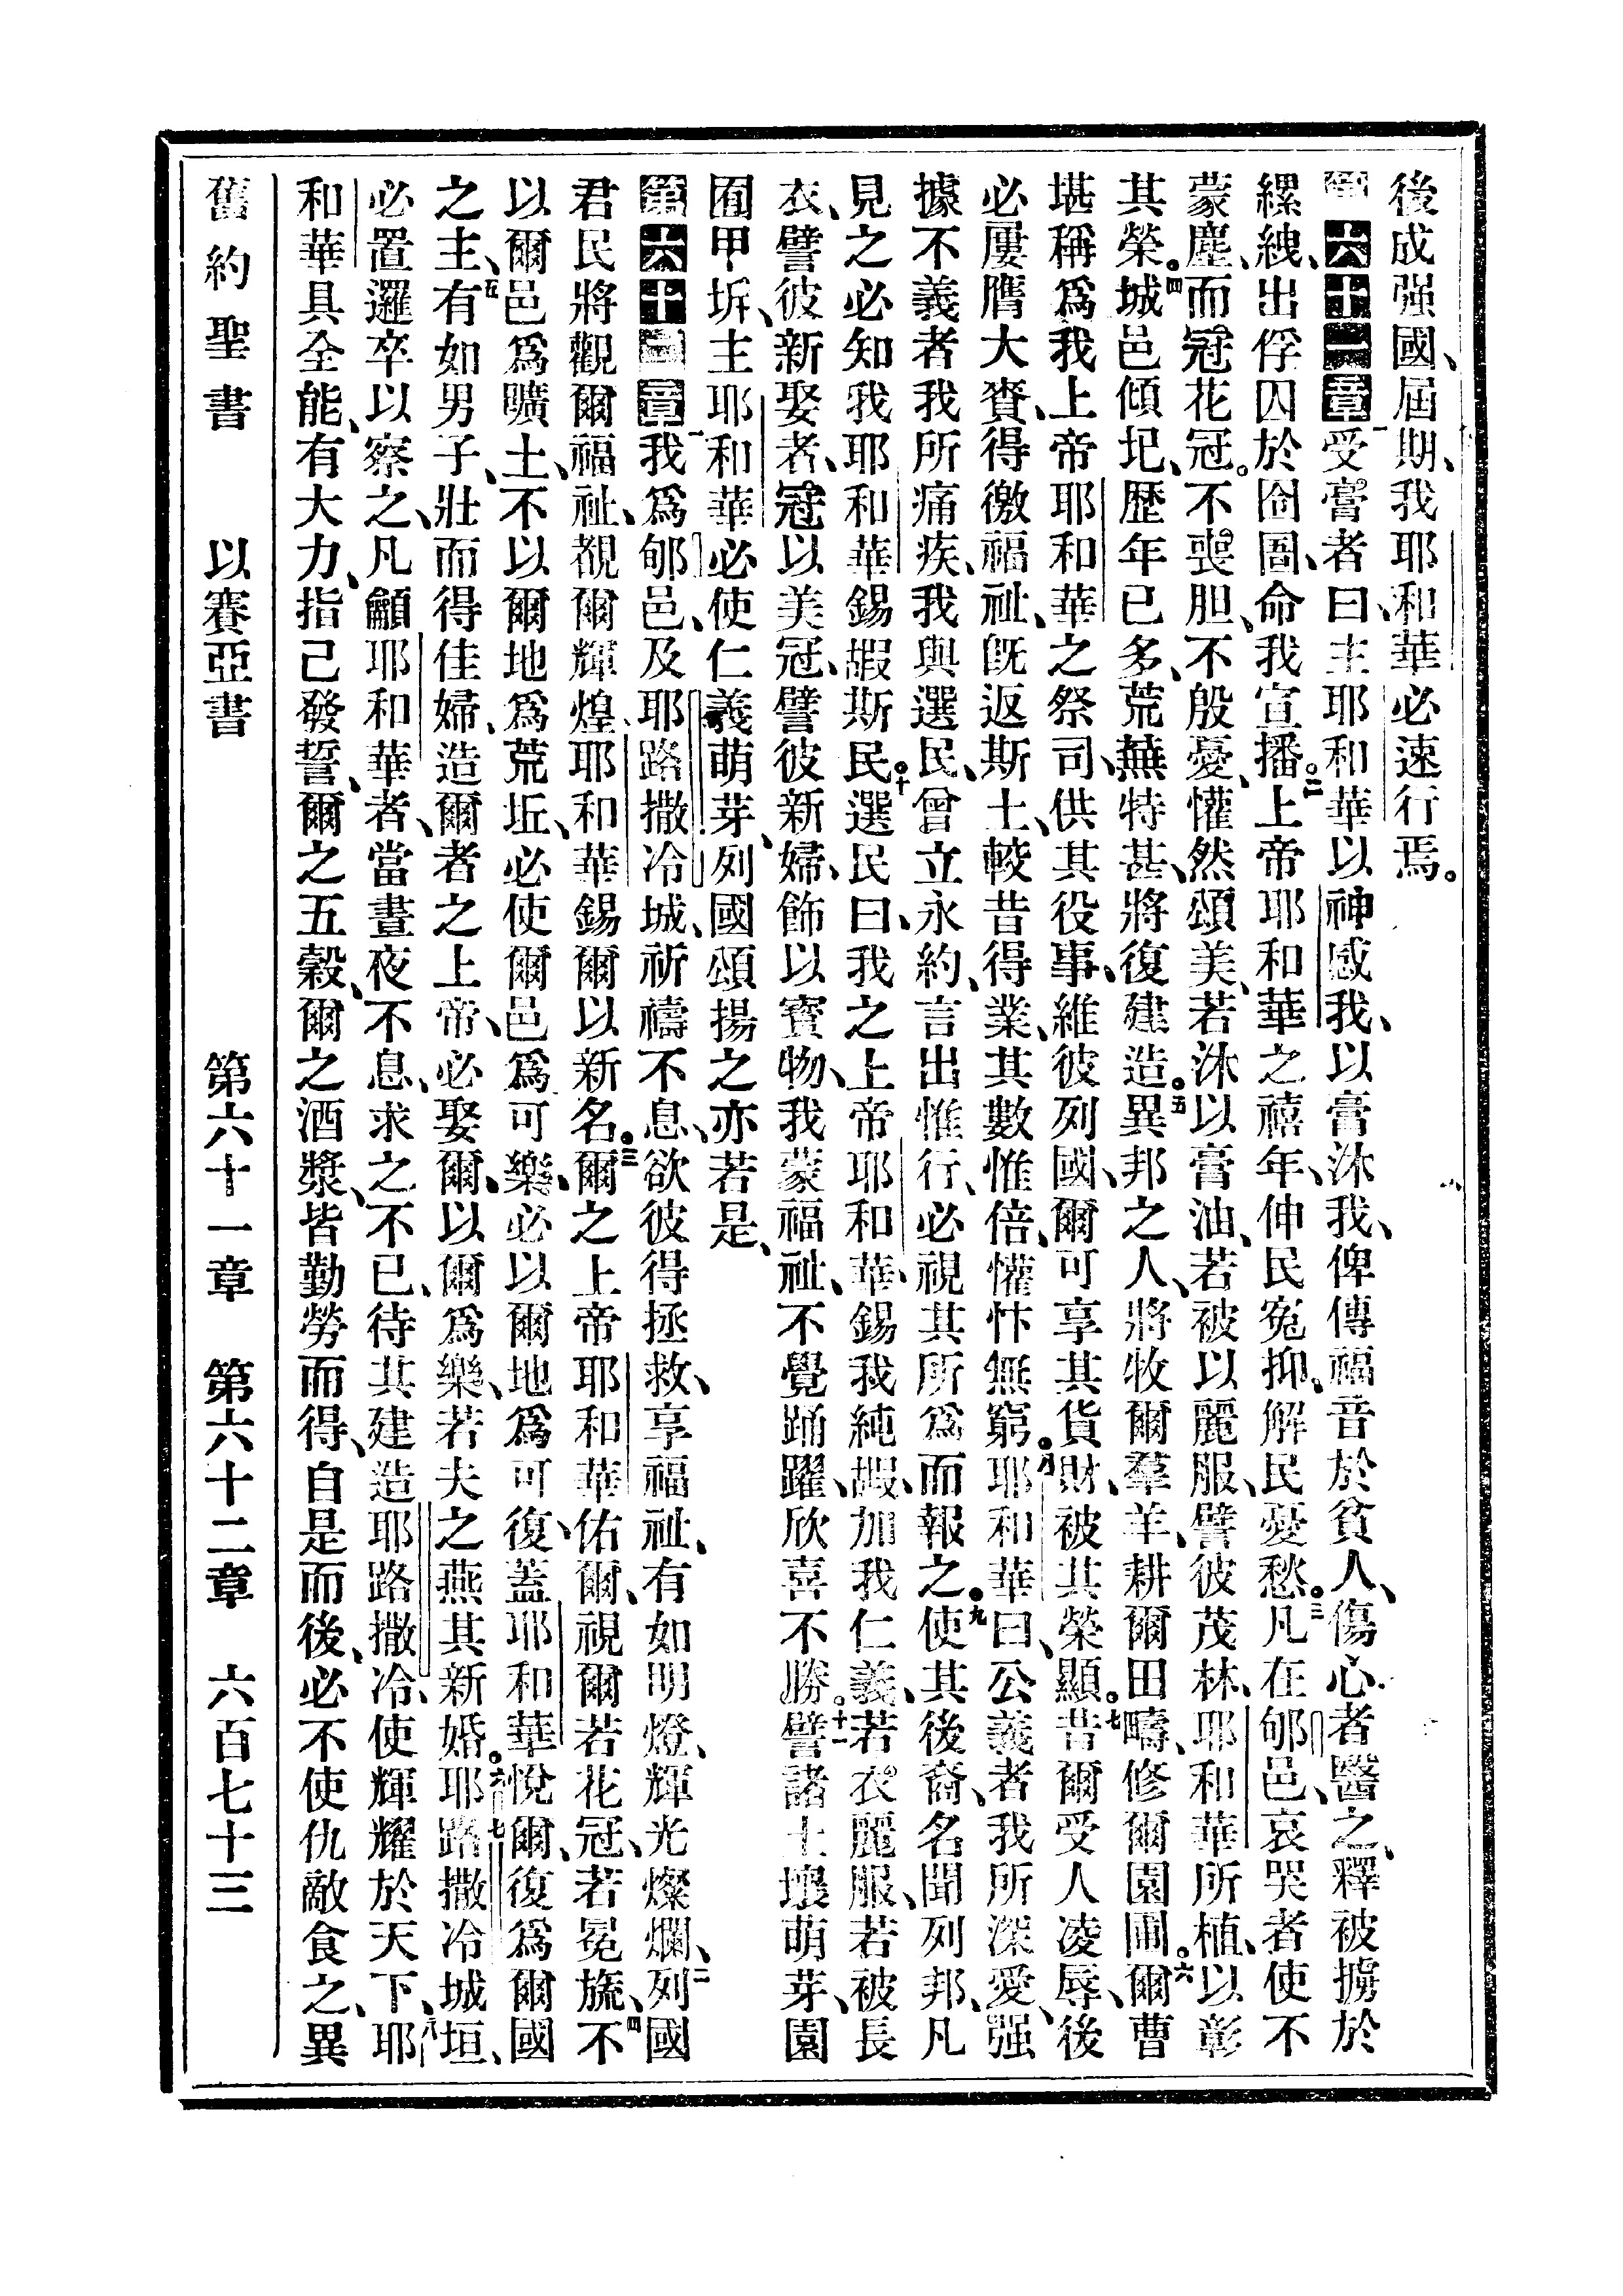 後成强國、屆期、我耶和華必速行焉。
第六十一章一受膏者曰、主耶和華以神感我、以膏沐我、俾傳福音於貧人、傷心者醫之、釋被擄於
縲絏、出俘囚於囹圄、命我宣播。二上帝耶和華之禧年、伸民冤抑、解民憂愁。三凡在郇邑、哀哭者使不
蒙塵、而冠花冠。不喪胆、不殷憂、懽然頌美、若沐以膏油、若被以麗服、譬彼茂林、耶和華所植、以彰
其榮。四城邑傾圮、歷年已多、荒蕪特甚、將復建造。五異邦之人、將牧爾羣羊、耕爾田疇、修爾園圃。六爾曹
堪稱爲我上帝耶和華之祭司、供其役事、維彼列國、爾可享其貨財、被其榮顯。七昔爾受人凌辱、後
必屢膺大賚、得徼福祉、旣返斯土、較昔得業、其數惟倍、懽忭無窮。八耶和華曰、公義者我所深愛、强
據不義者我所痛疾、我與選民、曾立永約、言出惟行、必視其所爲而報之。九使其後裔、名聞列邦、凡
見之必知我耶和華錫嘏斯民。十選民曰、我之上帝耶和華、錫我純嘏、加我仁義、若衣麗服、若被長
衣、譬彼新娶者、冠以美冠、譬彼新婦、飾以寶物、我蒙福祉、不覺踊躍、欣喜不勝。十一譬諸土壤萌芽、園
囿甲坼、主耶和華必使仁義萌芽、列國頌揚之亦若是、
第六十二章一我爲郇邑、及耶路撒冷城、祈禱不息、欲彼得拯救、享福祉、有如明燈、輝光燦爛、二列國
君民將觀爾福祉、覩爾輝煌、耶和華錫爾以新名。三爾之上帝耶和華佑爾、視爾若花冠、若冕旒、四不
以爾邑爲曠土、不以爾地爲荒坵、必使爾邑爲可樂、必以爾地爲可復、蓋耶和華悅爾、復爲爾國
之主、五有如男子、壯而得佳婦、造爾者之上帝、必娶爾、以爾爲樂、若夫之燕其新婚。六耶路撒冷城垣、
必置邏卒以察之、凡籲耶和華者、當晝夜不息、七求之不已、待其建造耶路撒冷、使輝耀於天下、八耶
和華具全能、有大力、指己發誓、爾之五穀、爾之酒漿、皆勤勞而得、自是而後、必不使仇敵食之、異
舊約聖書　以賽亞書　第六十一章　第六十二章　六百七十三